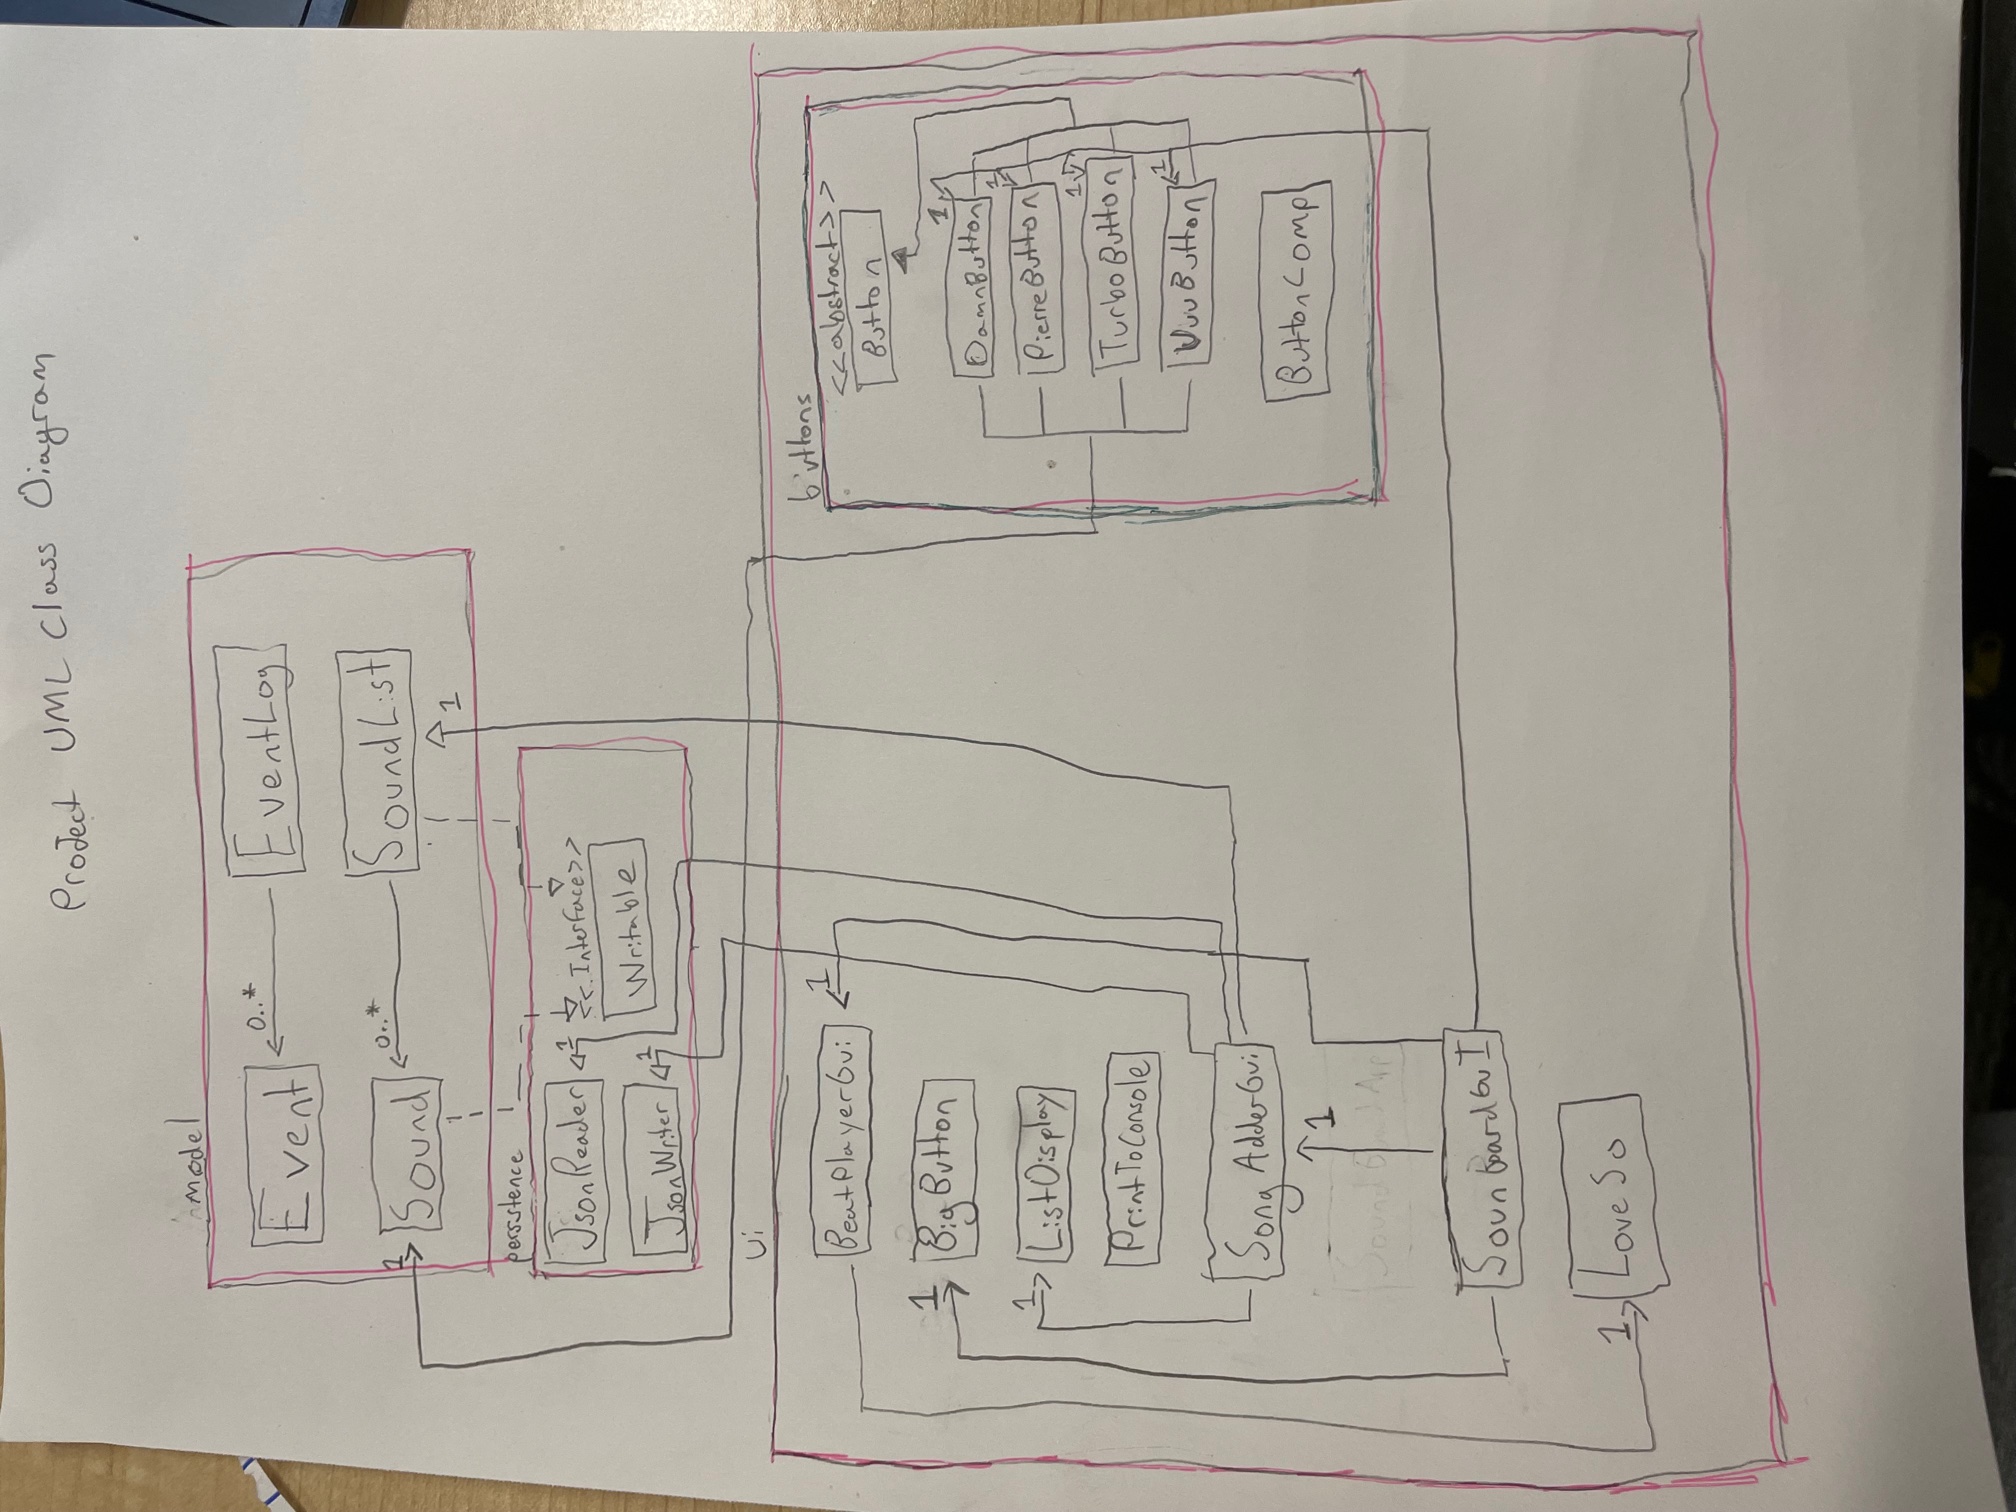 Project UML Class Diagram
model
Event
0..*
EventLog
Sound
1
0..*
SoundList
1
persistence
JsonReader
1
<<Interface>>
Writable
JsonWriter
1
ui
BeatPlayerGui
1
1
BigButton
1
ListDisplay
PrintToConsole
SongAdderGui
1
SounBoardGuI
1
LoveSo
buttons
<<abstract>>
Button
1
DamnButton
1
PierreButton
1
TurboButton
1
VuuButton
ButtonComp